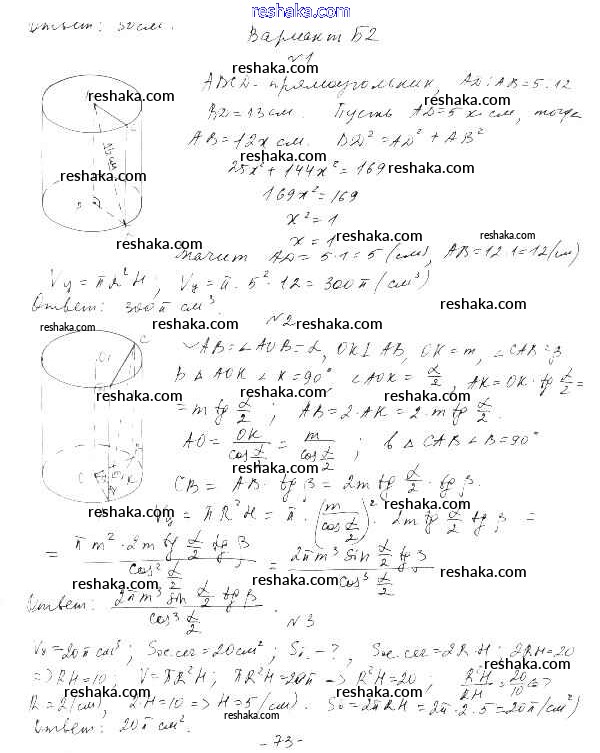 reshaka.com
Ответ: 30 см.
Вариант Б2
№1
ABCD - прямоугольник, AD:AB=5:12
BD=13см. Пусть AD=5x см, тогда
AB=12x см. BD²=AD²+AB²
25x²+144x²=169
169x²=169
x²=1
x=1
Значит AD=5·1=5(см), AB=12·1=12(см)
Vц=πR²H; Vц=π·5²·12=300π(см³)
Ответ: 300π см³.
№2
◡AB=∠AOB=α, OK⊥AB, OK=m, ∠CAB=β
В △AOK ∠K=90° ∠AOK=α/2, AK=OK·tg α/2=
=m tg α/2; AB=2·AK=2·m tg α/2.
AO=OK/cos α/2=m/cos α/2; в △CAB ∠B=90°
CB=AB·tg β=2m tg α/2·tg β.
Vц=πR²H=π·(m/cos α/2)²·2m tg α/2 tg β=
=πm²·2m tg α/2 tg β/cos² α/2=2πm³ sin α/2 tg β/cos³ α/2
Ответ: 2πm³ sin α/2 tg β/cos³ α/2.
№3
Vц=20π см³; Sос.сеч=20см²; Sб-? Sос.сеч=2R·H; 2RH=20
=>RH=10; V=πR²H; πR²H=20π => R²H=20; R²H/RH=20/10 <=>
R=2(см), 2·H=10 => H=5(см). Sб=2πRH=2π·2·5=20π(см²)
Ответ: 20π см².
- 73 -